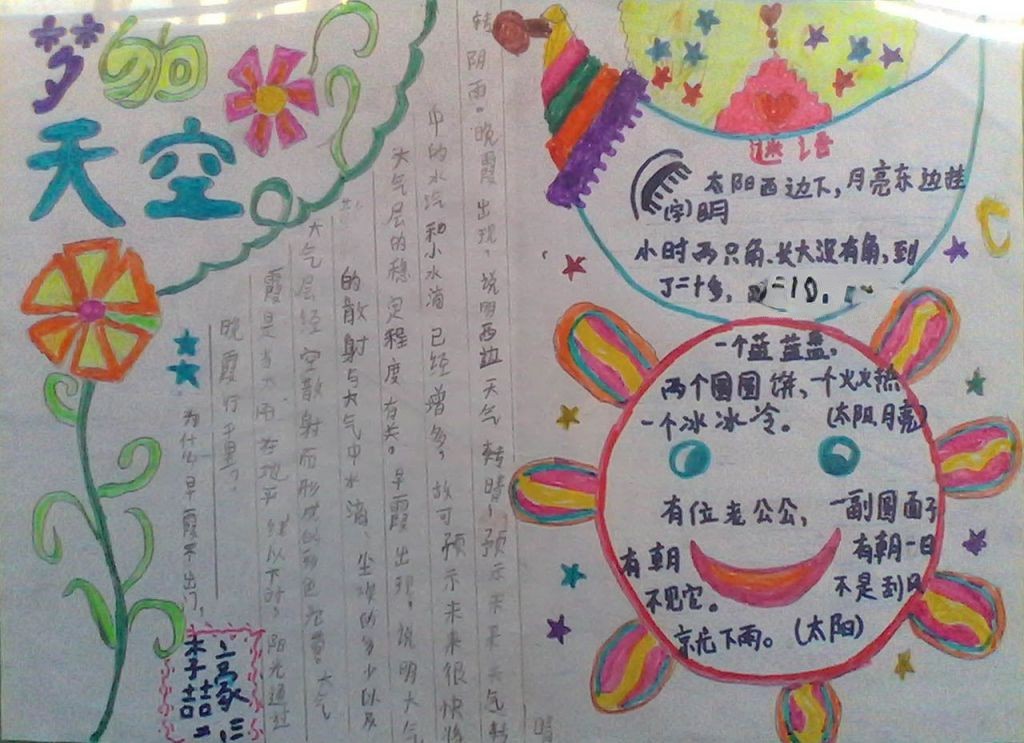 梦幻
天空
为什么早霞不出门，
晚霞行千里？
霞是当太阳在地平线以下时，阳光通过
大气层经空散射而形成的彩色光象。大气
的散射与大气中水滴、尘埃的多少以及
大气层的稳定程度有关。早霞出现，说明大气
中的水汽和小水滴已经增多，故可预示未来很快将
转阴雨。晚霞出现，说明西边天气转晴，预示未来天气转
晴
谜语
太阳西边下，月亮东边挂
(字)明
小时两只角、长大没有角，到
了二十多，
一个蓝蓝盘，
两个圆圆饼、一个火火热
一个冰冰冷。(太阳月亮)
有位老公公，一副圆面子
有朝 有朝一日
不见它。 不是刮风
就下雨。(太阳)